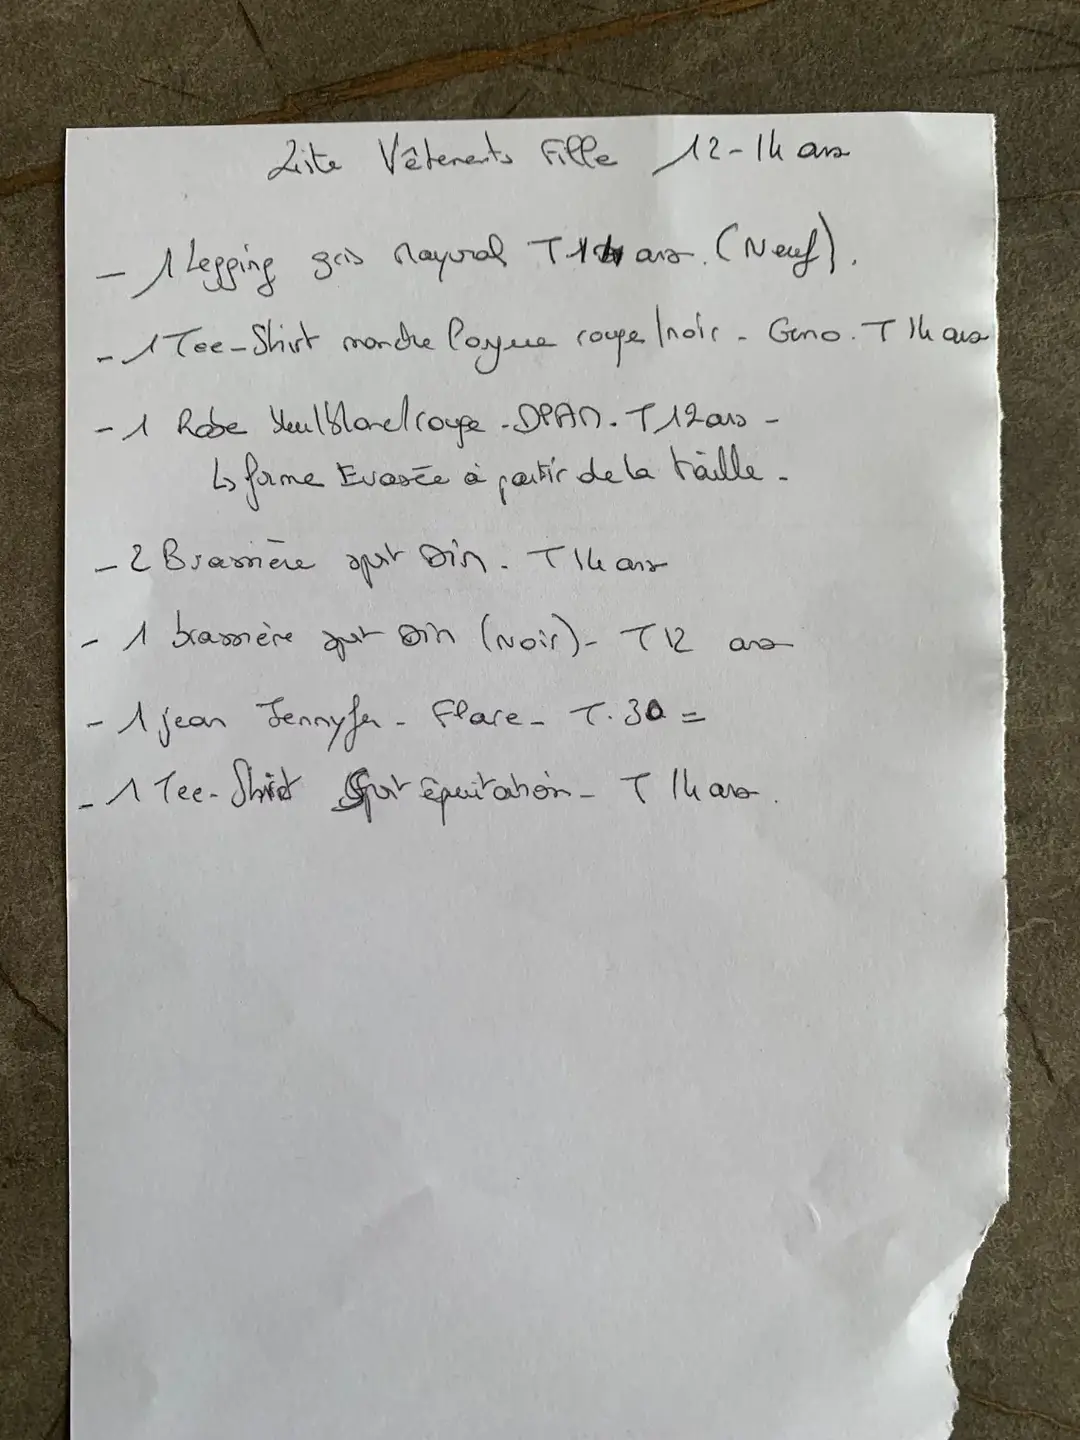 Liste Vêtements Fille 12-14 ans
- 1 Legging gris Mayoral T 14 ans. (Neuf).
- 1 Tee-Shirt manche longue rouge/noir - Gemo. T 14 ans
- 1 Robe bleu/blanc/rouge - DPAM. T 12 ans -
↳ forme Evasée à partir de la taille.
- 2 Brassière sport Dim. T 14 ans
- 1 brassière sport Dim (Noir) - T 12 ans
- 1 jean Jennyfer - Flare - T. 30 =
- 1 Tee-Shirt Sport équitation - T 14 ans.